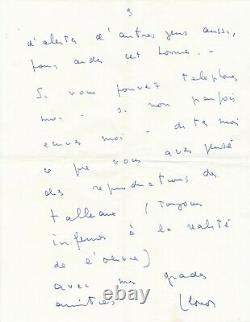 3
d'alerter d'autres gens aussi,
pour aider cet homme.
Si vous pouvez telephoner
moi - si non parfois
moi - dites moi
ce que vous avez pensé
des reproductions des
tableaux (toujours
inferieurs à la realité
de l'oeuvre)
avec mes grandes
amitiés